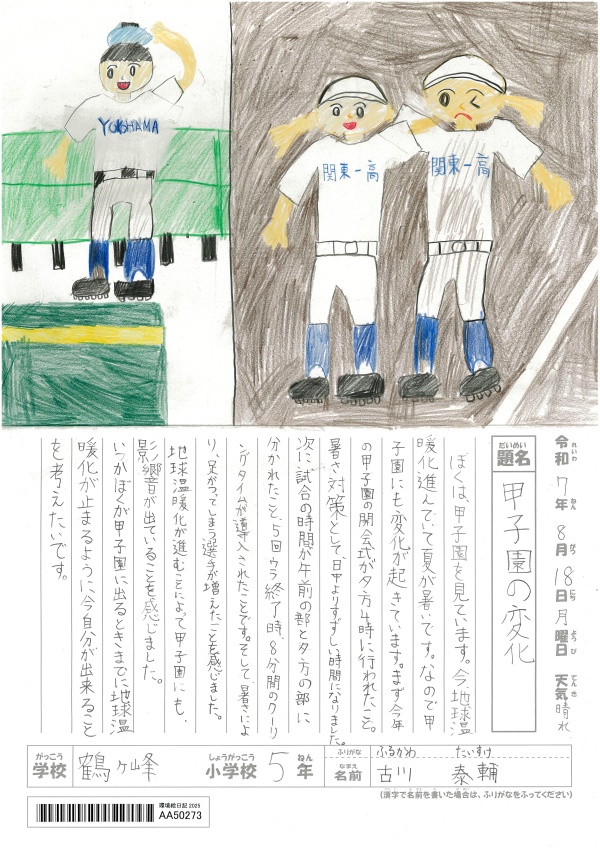 YOKOHAMA
関東一高
関東一高
令和7年8月18日月曜日 天気晴れ
れいわ ねん がつ にち ようび てんき
だいめい
題名
甲子園の変化
ぼくは、甲子園を見ています。今地球温
暖化進んでいて夏が暑いです。なので甲
子園にも変化が起きています。まず今年
の甲子園の開会式が夕方4時に行われたこと。
暑さ対策として、日中よりすずしい時間になりました。
次に試合の時間が午前の部と夕方の部に
分かれたこと、5回ウラ終了時、8分間のクーリ
ングタイムが導入されたことです。そして、暑さによ
り、足がつってしまう選手が増えたことを感じました。
地球温暖化が進むことによって甲子園にも、
影響が出ていることを感じました。
いつかぼくが甲子園に出るときまでに地球温
暖化が止まるように今自分が出来ること
を考えたいです。
がっこう しょうがっこう ねん
学校 鶴ヶ峰 小学校 5年
ふりがな ふるかわ たいすけ
なまえ
名前 古川 泰輔
(漢字で名前を書いた場合は、ふりがなをふってください)
環境絵日記 2025
AA50273